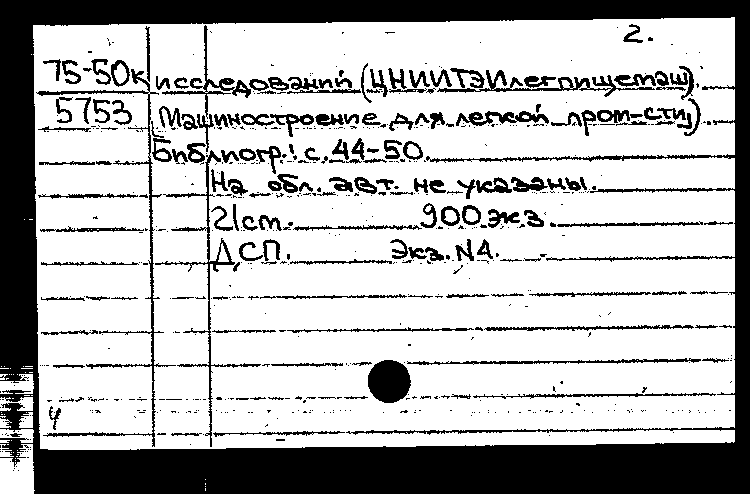 2.
75-50к исследований (ЦНИИТЭИлегпищемаш).
5753 Машиностроение для легкой пром-сти)
Библиогр.: с. 44-50.
На обл. авт. не указаны.
21ст. 900 экз.
ДСП. Экз. N4.
4